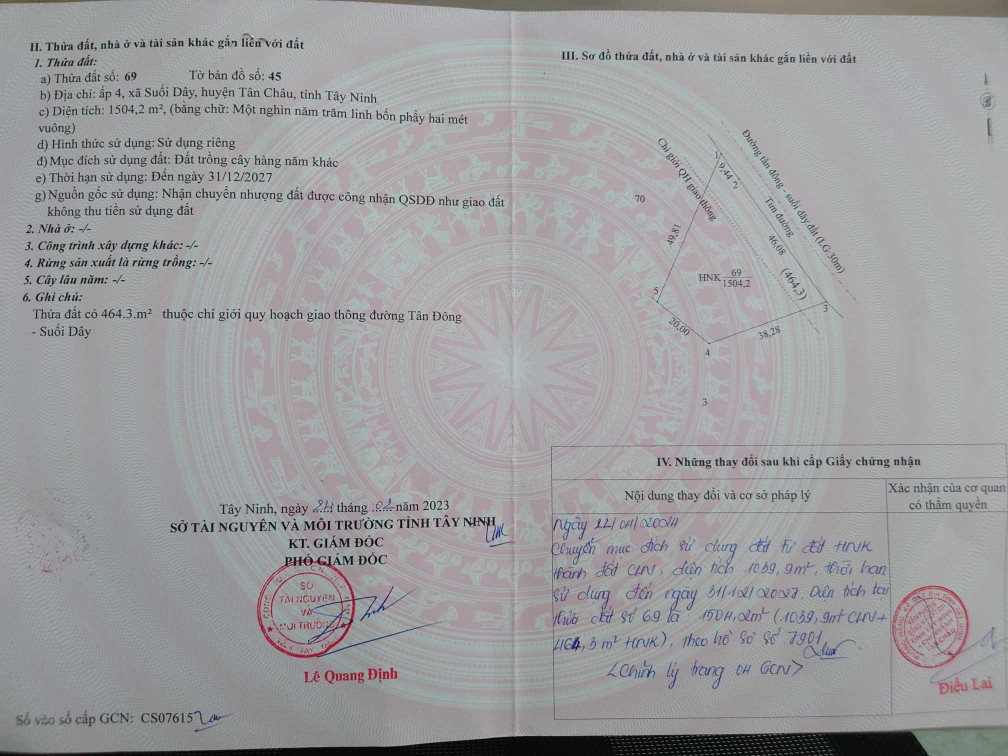 II. Thửa đất, nhà ở và tài sản khác gắn liền với đất
1. Thửa đất:
a) Thửa đất số: 69 Tờ bản đồ số: 45
b) Địa chỉ: ấp 4, xã Suối Dây, huyện Tân Châu, tỉnh Tây Ninh
c) Diện tích: 1504,2 m², (bằng chữ: Một nghìn năm trăm linh bốn phẩy hai mét
vuông)
d) Hình thức sử dụng: Sử dụng riêng
đ) Mục đích sử dụng đất: Đất trồng cây hàng năm khác
e) Thời hạn sử dụng: Đến ngày 31/12/2027
g) Nguồn gốc sử dụng: Nhận chuyển nhượng đất được công nhận QSDĐ như giao đất
không thu tiền sử dụng đất
2. Nhà ở: -/-
3. Công trình xây dựng khác: -/-
4. Rừng sản xuất là rừng trồng: -/-
5. Cây lâu năm: -/-
6. Ghi chú:
Thửa đất có 464.3.m² thuộc chỉ giới quy hoạch giao thông đường Tân Đông
- Suối Dây
Tây Ninh, ngày tháng năm 2023
SỞ TÀI NGUYÊN VÀ MÔI TRƯỜNG TỈNH TÂY NINH
KT. GIÁM ĐỐC
PHÓ GIÁM ĐỐC
SỞ
TÀI NGUYÊN
VÀ
MÔI TRƯỜNG
Lê Quang Định
Số vào sổ cấp GCN: CS07615
III. Sơ đồ thửa đất, nhà ở và tài sản khác gắn liền với đất
Đường tân đông - suối dây đất (LG:30m)
Chỉ giới QH giao thông
Tim đường
1
9,44
2
70
49,81
46,08
(464,3)
HNK
69
1504,2
5
3
20,00
38,28
4
3
IV. Những thay đổi sau khi cấp Giấy chứng nhận
Nội dung thay đổi và cơ sở pháp lý
Xác nhận của cơ quan
có thẩm quyền
Ngày 22/04/2024
Chuyển mục đích sử dụng đất từ đất HNK
thành đất CLN, diện tích 1039,9m², thời hạn
sử dụng đến ngày 31/12/2027. Diện tích tại
thửa đất số 69 là: 1504,2m² (1039,9m² CLN +
464,3m² HNK), theo hồ sơ số 7901
<Chỉnh lý trang 04 GCN>
Điểu Lai